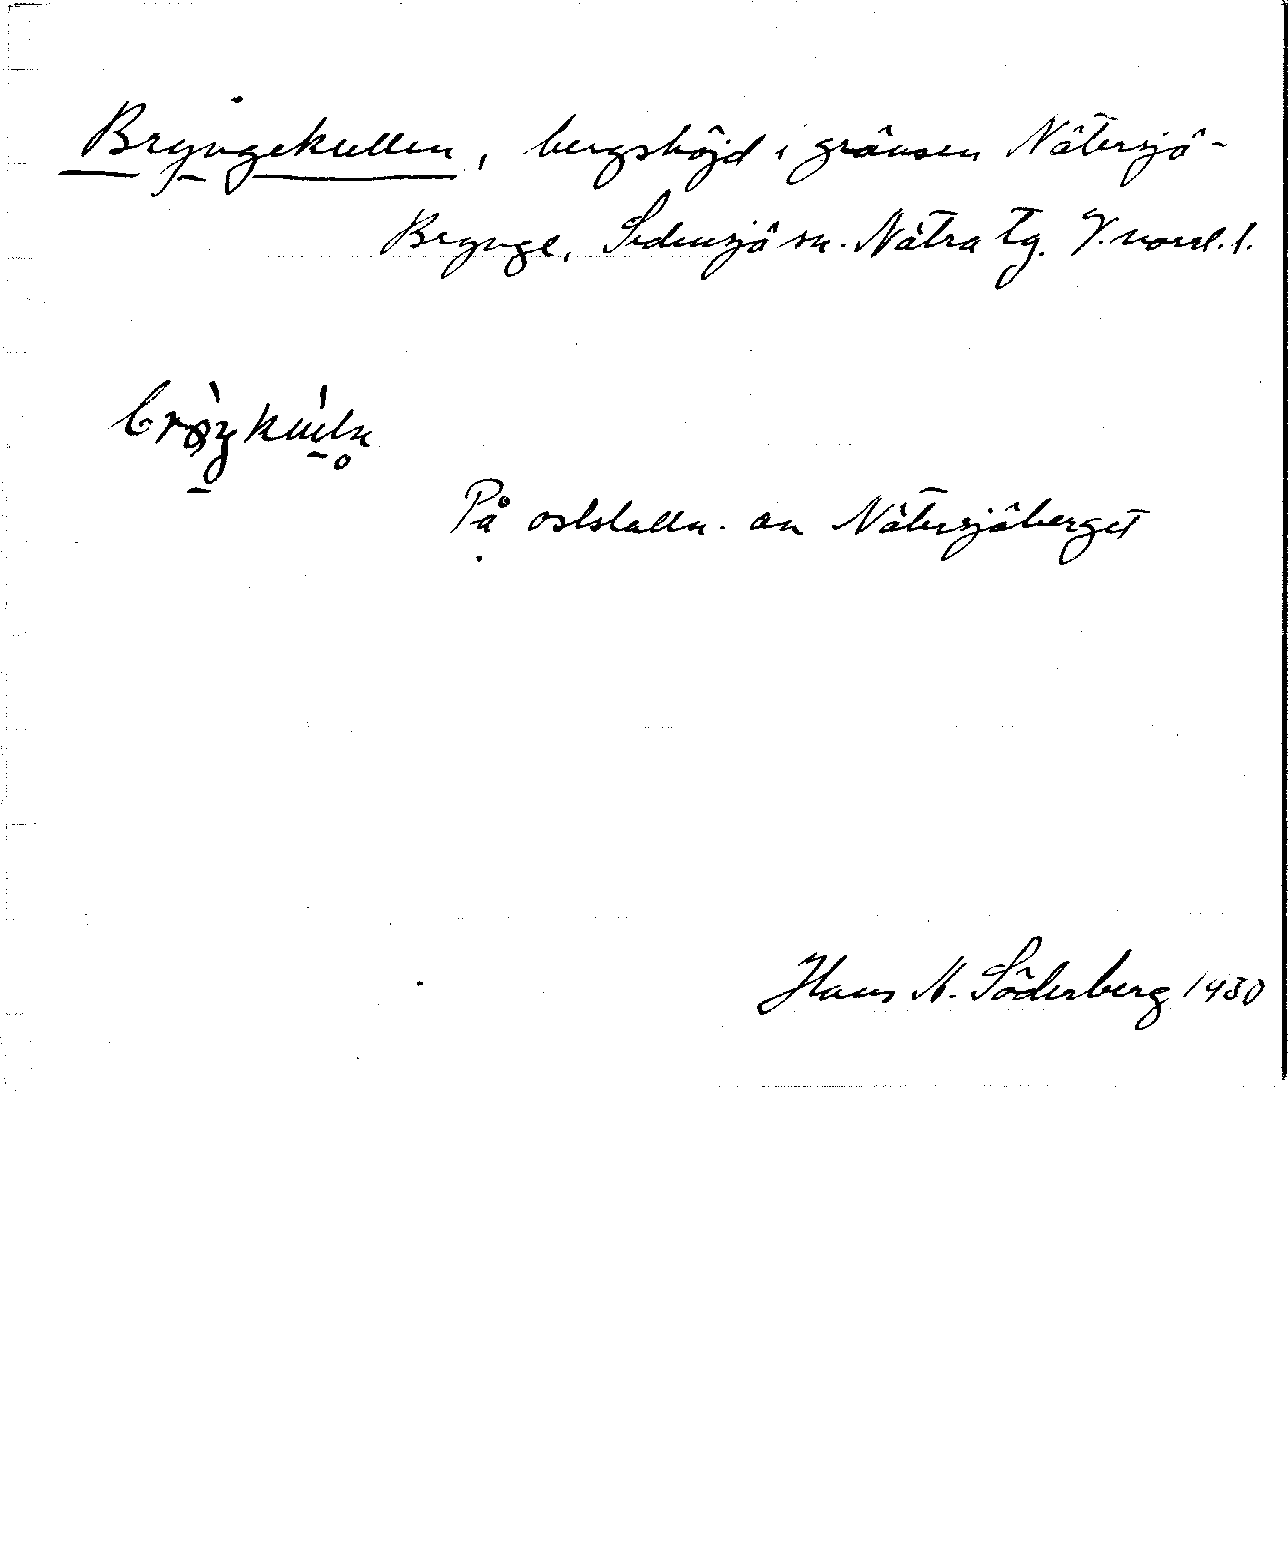 Bryngekullen, bergshöjd i gränsen Nätersjö-
Brynge, Sidensjö sn. Nätra tg. V. norrl. l.
På
Nätersjöberget
Hans N. Söderberg 1930